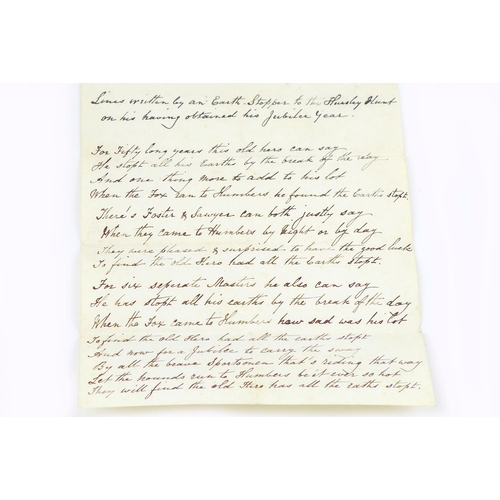 Lines written by an Earth Stopper to the Hursley Hunt
on his having obtained his Jubilee Year.
For Fifty long years this old hero can say
He stopt all his Earths by the break of the day
And one thing more to add to his lot
When the Fox ran to Humbers he found the Earths stopt.
There's Foster & Sawyer can both justly say
When they came to Humbers by Night or by day
They were pleased & surprised to have the good luck
To find the old Hero had all the Earths Stopt.
For six seperate Masters he also can say
He has stopt all his earths by the break of the day
When the Fox came to Humbers how sad was his lot
To find the old Hero had all the earths stopt
And now for a Jubilee to carry the sway
By all the brave Sportsmen that's riding that way
Let the hounds run to Humbers be it ever so hot
They will find the old Hero has all the eaths stopt.